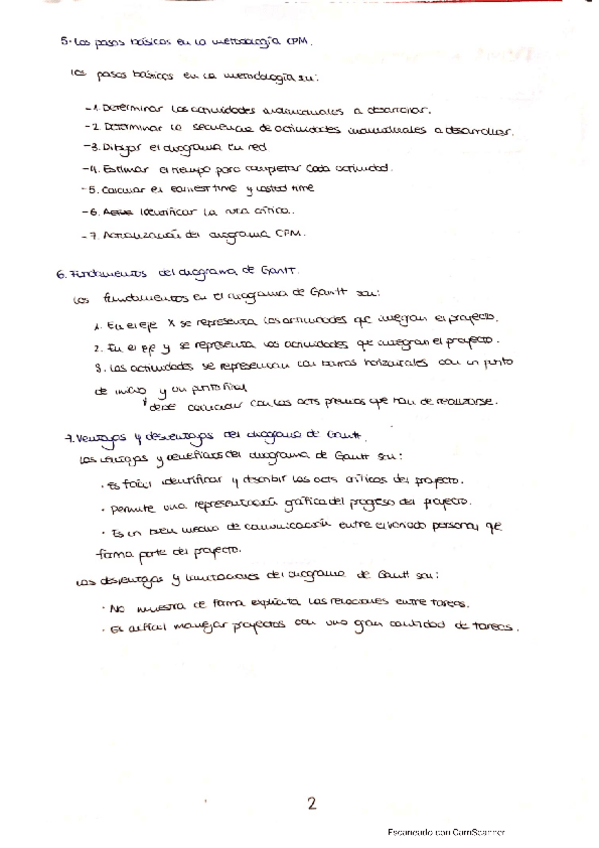 5. Los pasos básicos en la metodología CPM.
los pasos básicos en la metodología son:
- 1. Determinar las actividades individuales a desarrollar.
- 2. Determinar la secuencia de actividades individuales a desarrollar.
- 3. Dibujar el diagrama en red
- 4. Estimar el tiempo para completar cada actividad.
- 5. Calcular el earliest time y lasted time
- 6. Identificar la ruta crítica.
- 7. Actualización del diagrama CPM.
6. Fundamentos del diagrama de Gantt.
Los fundamentos en el diagrama de Gantt son:
1. En el eje X se representa las actividades que integran el proyecto.
2. En el eje y se representa las actividades que integran el proyecto.
3. Las actividades se representan con barras horizontales con un punto
de inicio y un punto final
* debe coincidir con las acts previas que han de realizarse.
7. Ventajas y desventajas del diagrama de Gantt.
Las ventajas y beneficios del diagrama de Gantt son:
· Es fácil identificar y describir las acts críticas del proyecto.
· Permite una representación gráfica del progreso del proyecto.
· Es un buen medio de comunicación entre el personal que
forma parte del proyecto.
Las desventajas y limitaciones del diagrama de Gantt son:
· No muestra de forma explícita las relaciones entre tareas.
· Es difícil manejar proyectos con una gran cantidad de tareas.
2
Escaneado con CamScanner